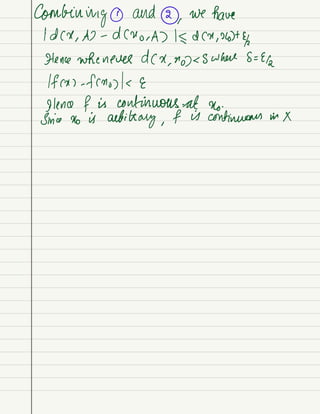 Combining ① and ②, we have
|d(x, A) - d(x₀, A)| ≤ d(x, x₀) + ε/2
Hence whenever d(x, x₀) < δ where δ = ε/2
|f(x) - f(x₀)| < ε
Hence f is continuous at x₀.
Since x₀ is arbitrary, f is continuous in X